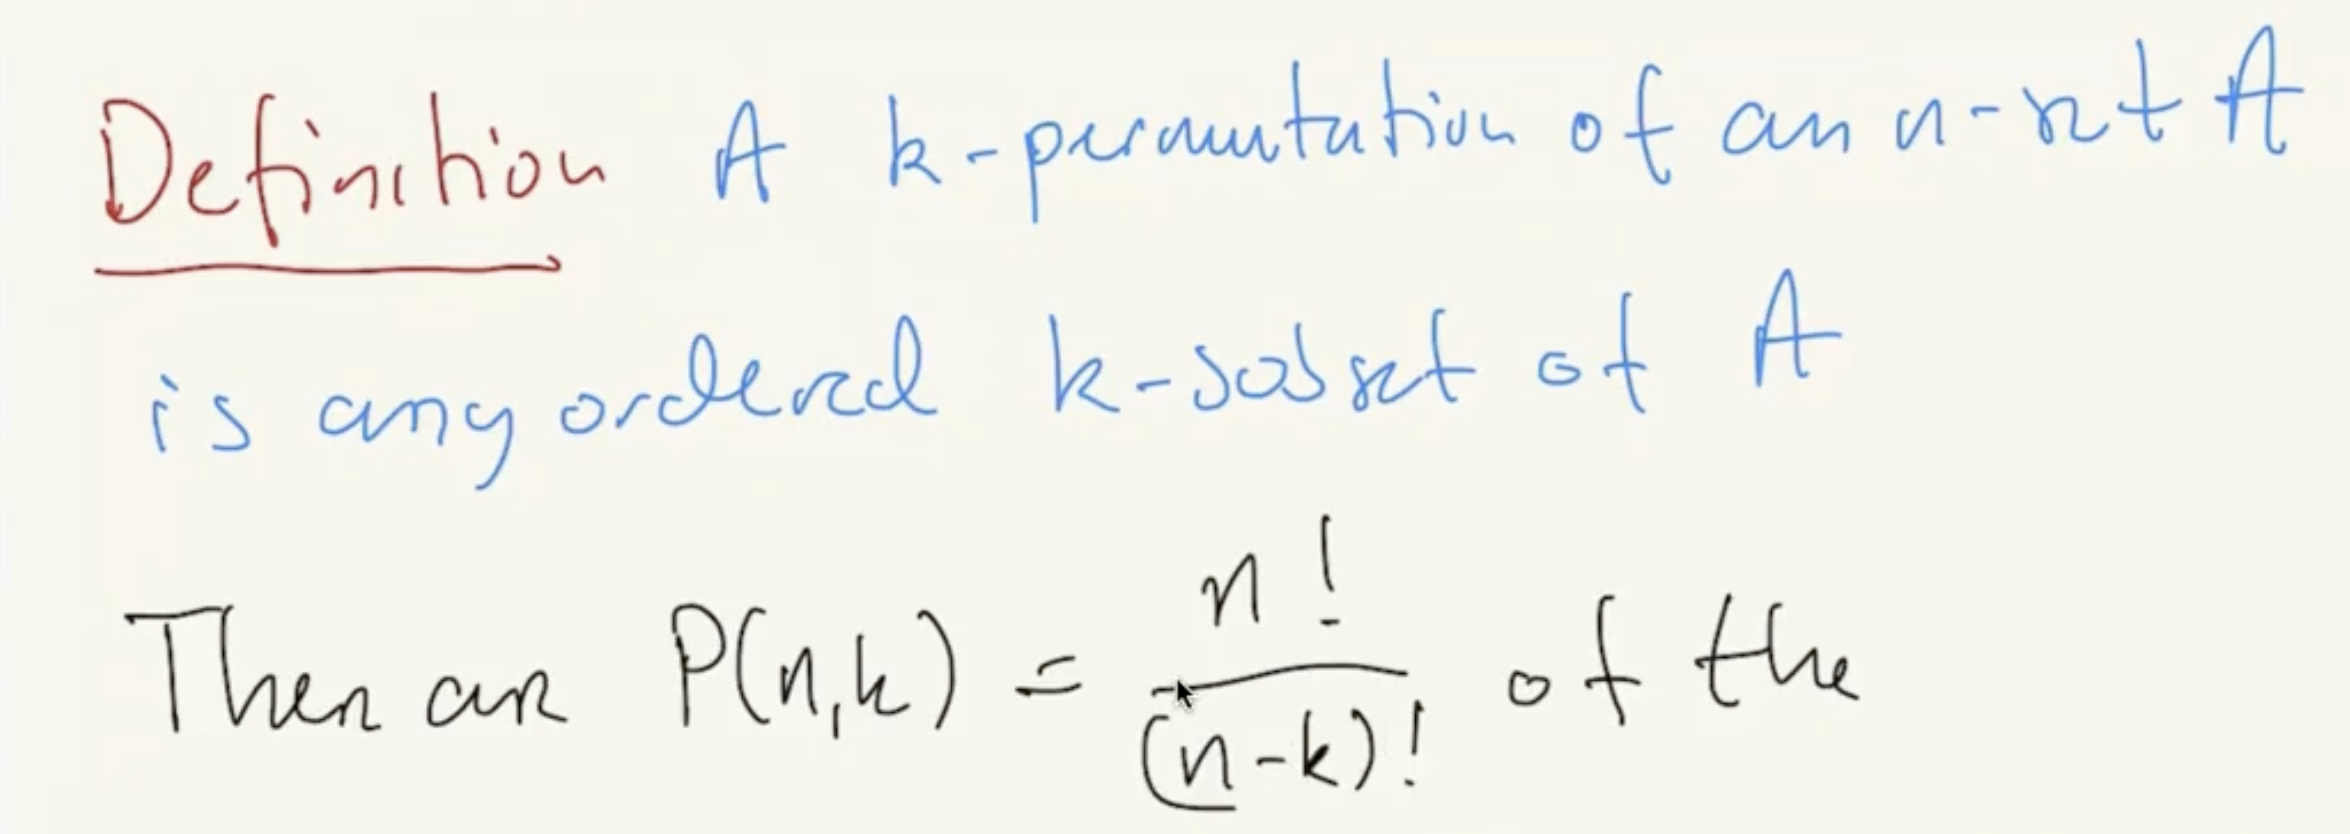 Definition A k-permutation of an n-set A
is any ordered k-subset of A
There are P(n,k) = n!/(n-k)! of the